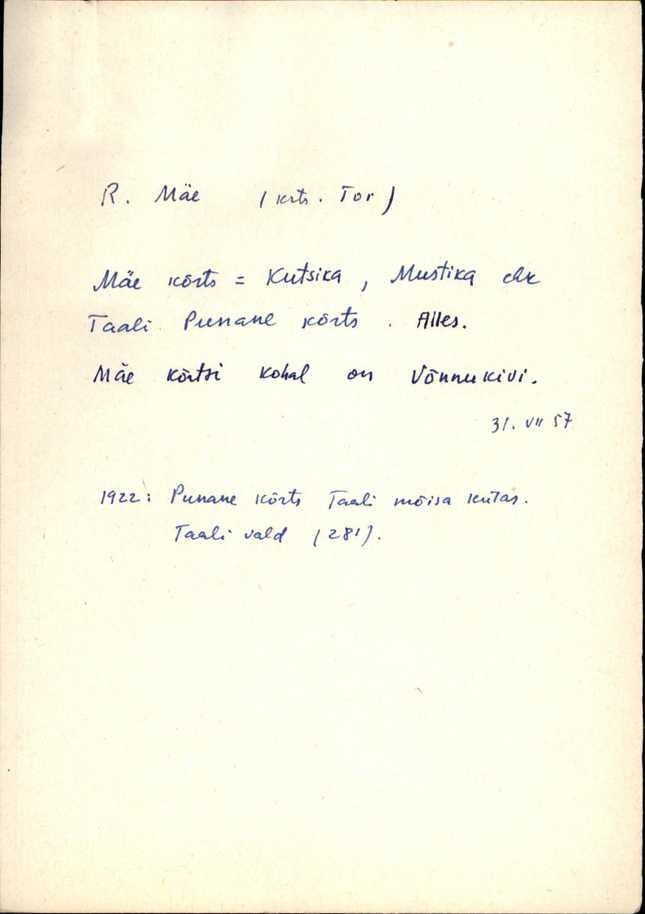 R. Mäe (krts. Tor)
Mäe kõrts = Kutsika, Mustika ehk
Taali Punane kõrts. Alles.
Mäe kõrtsi kohal on Võnnukivi.
31. VII 57
1922: Punane kõrts Taali mõisa külas.
Taali vald (281).